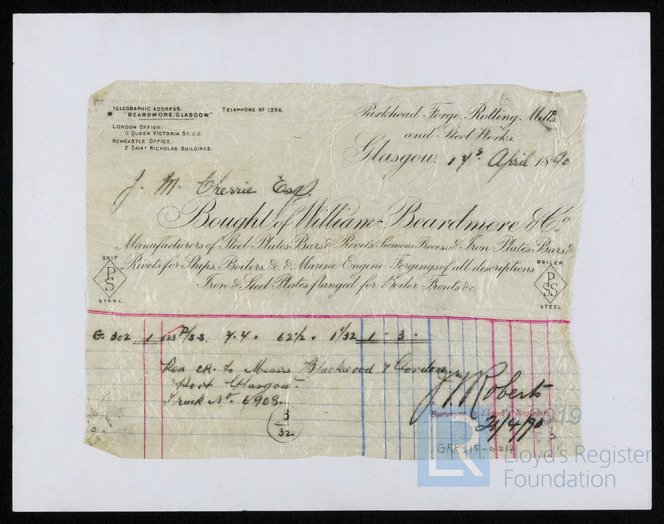 TELEGRAPHIC ADDRESS.
"BEARDMORE, GLASGOW"
TELEPHONE No 1336.
LONDON OFFICE.
11 QUEEN VICTORIA ST. E.C.
NEWCASTLE OFFICE.
2 SAINT NICHOLAS BUILDINGS.
Parkhead Forge, Rolling Mills,
and Steel Works.
Glasgow, 17th April 1890
J. M. Cherrie Esq.
Bought of William Beardmore & Co.,
Manufacturers of Steel Plates Bars & Rivets Siemens Process & Iron Plates Bars &
Rivets for Ships, Boilers, &c. & Marine Engine Forgings of all descriptions.
Iron & Steel Plates flanged for Boiler Fronts &c.
SHIP
PSS
STEEL
BOILER
PSS
STEEL
G. 302 1 P/SS 7.4. 62½ 1 1/32 1 . 3 .
to Messrs Blackwood & Gordon
Port Glasgow.
Truck No. 6908.
3
32
J. Roberts
Surveyor to Lloyd's Register
21/4/90
2019
LR
Lloyd's Register
Foundation